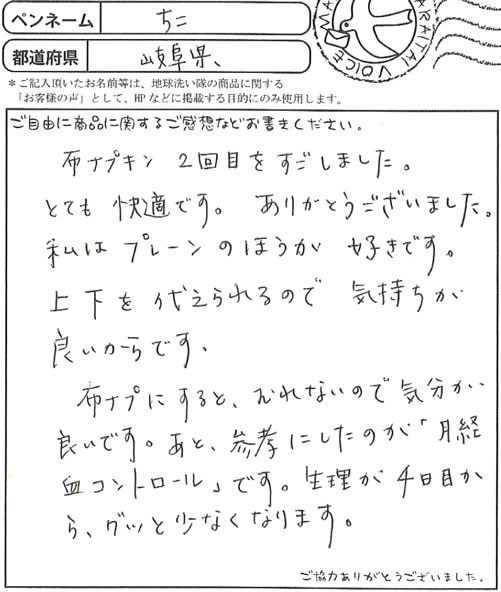 ペンネーム ちこ
都道府県 岐阜県、
＊ご記入頂いたお名前等は、地球洗い隊の商品に関する
「お客様の声」として、HPなどに掲載する目的にのみ使用します。
ご自由に商品に関するご感想などお書きください。
布ナプキン 2回目をすごしました。
とても 快適です。 ありがとうございました。
私は プレーン のほうが 好きです。
上下を 代えられるので 気持ちが
良いからです。
布ナプにすると、むれないので気分が
良いです。あと、参考にしたのが「月経
血コントロール」です。生理が4日目か
ら、グッと少なくなります。
ご協力ありがとうございました。
VOICE